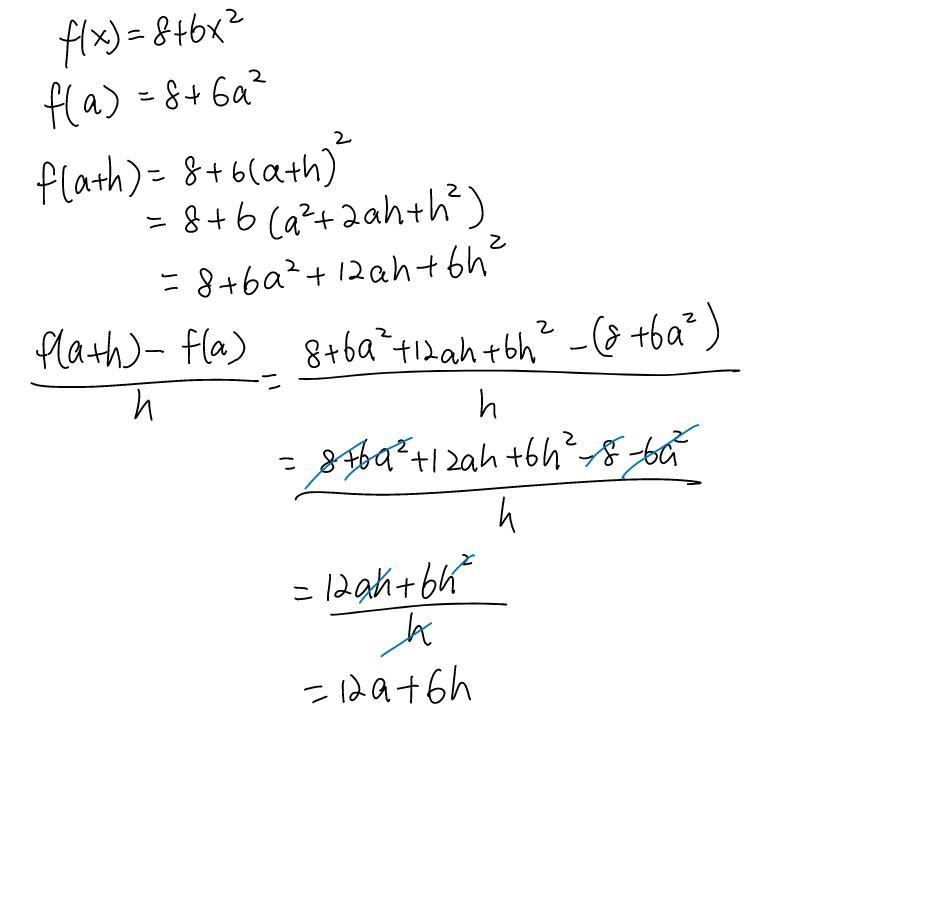 f(x) = 8+6x²
f(a) = 8+6a²
f(a+h) = 8+6(a+h)²
= 8+6(a²+2ah+h²)
= 8+6a²+12ah+6h²
f(a+h) - f(a) / h = 8+6a²+12ah+6h² - (8+6a²) / h
= 8+6a²+12ah+6h²-8-6a² / h
= 12ah+6h² / h
= 12a+6h